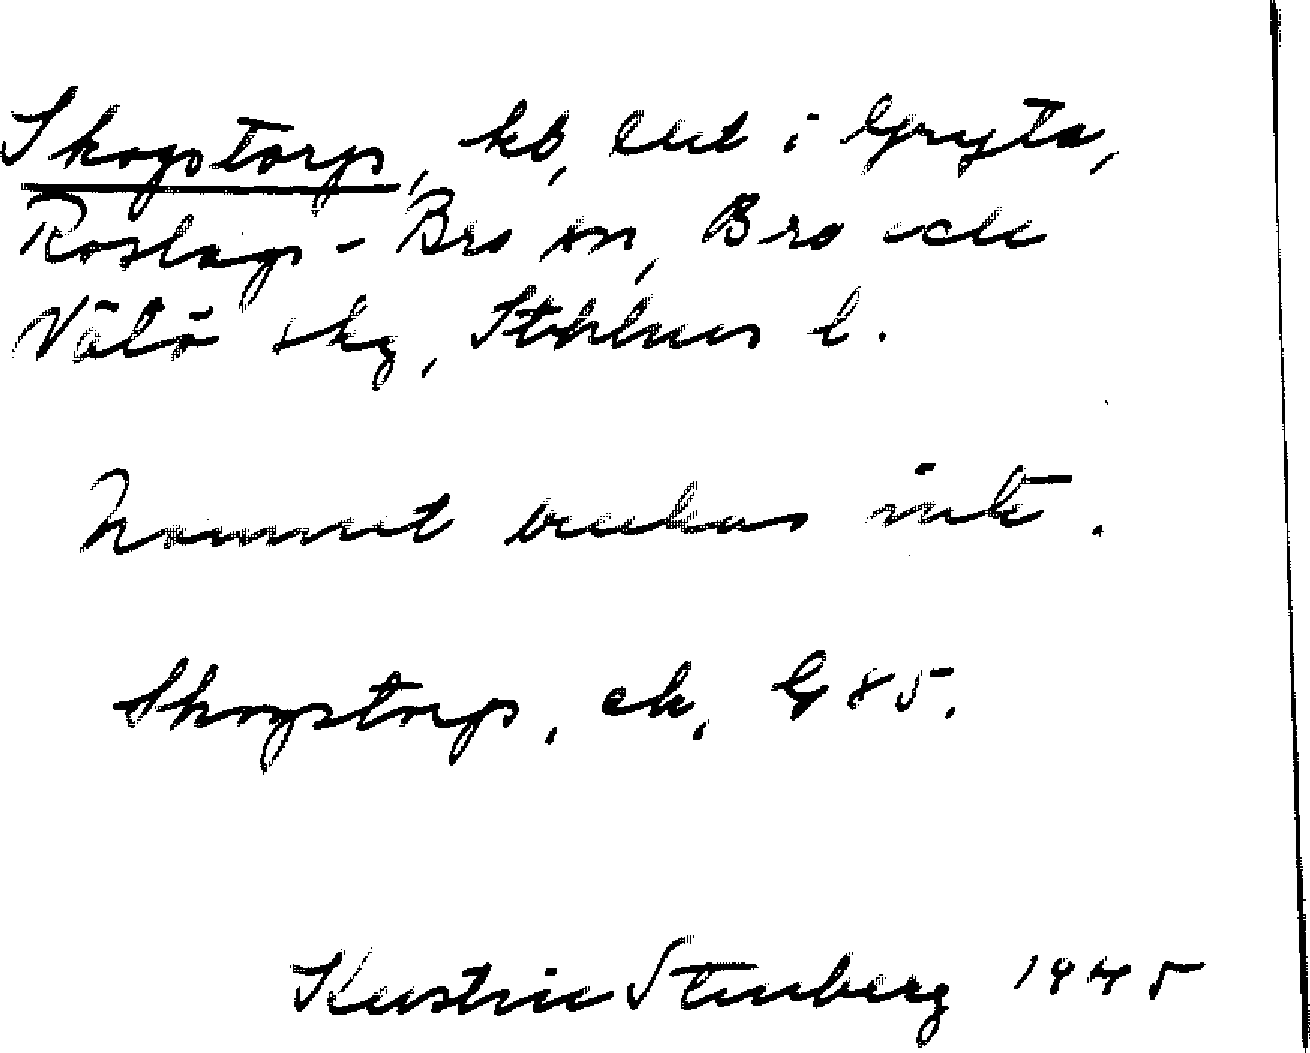 Skogstorp, kb, lht i Gryta,
Roslags-Bro sn, Bro och
Vätö skg, Sthlms l.
Namnet brukas inte.
Skogstorp, ek, G 85.
Kerstin Stenberg 1945